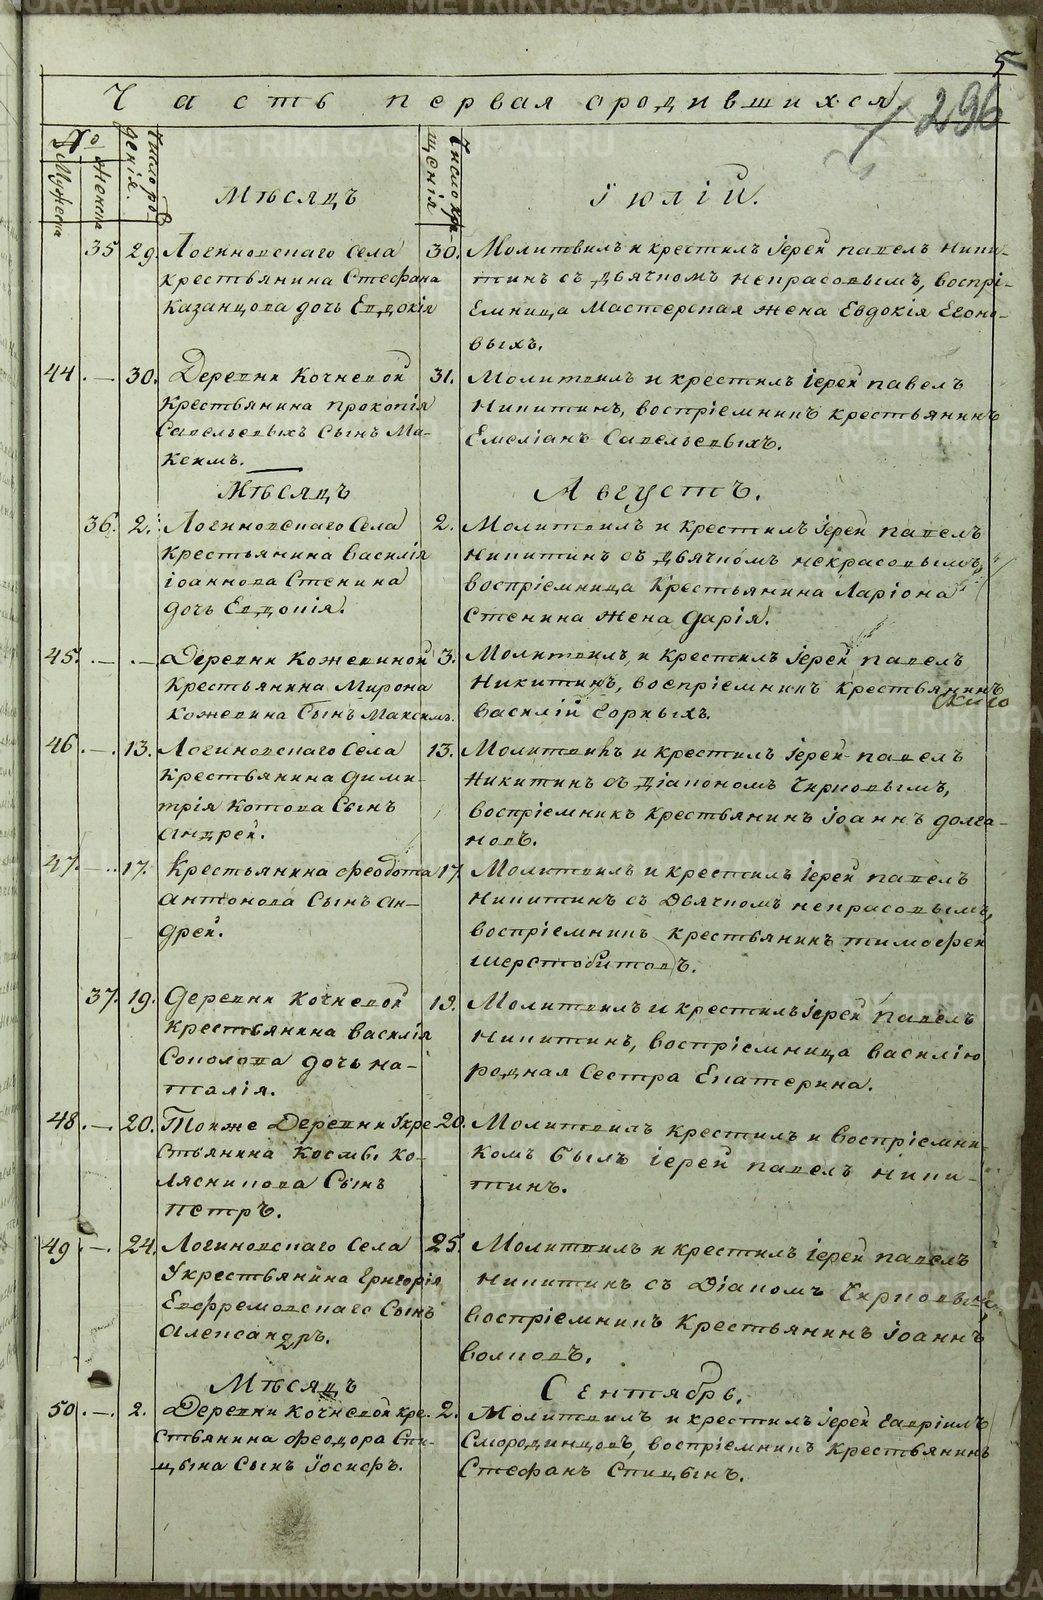 5
Часть первая ородившихся
296
№
Мужеска
Женска
Число рождения.
Мѣсяцъ
Число крещенія
Іюлій.
35 29. Логиновскаго Села 30. Молитвилъ и крестилъ Іерей павелъ ники-
крестьянина Стефана тинъ съ дьячкомъ некрасовымъ, воспрі-
Казанцова дочь Евдокія Емница Мастерская жена Евдокія Егоно-
выхъ.
44. — 30. Деревни Кочневой 31. Молитвилъ и крестилъ іерей павелъ
крестьянина прокопія Никитинъ, воспріемникъ крестьянинъ
Савельевыхъ Сынъ Ма- Емеліанъ Савельевыхъ.
ксимъ.
Мѣсяцъ Августъ.
36. 2. Логиновскаго Села 2. Молитвилъ и крестилъ іерей павелъ
крестьянина Василія Никитинъ съ дьячкомъ некрасовымъ,
іоаннова Стенина воспріемница Крестьянина Ларіона
дочь Евдокія. Стенина жена дарія.
45. — — Деревни Кожевиной 3. Молитвилъ и крестилъ іерей павелъ
крестьянина Мирона Никитинъ, воспріемникъ крестьянинъ
Кожевина Сынъ Максимъ. Василій Горныхъ.
46. — 13. Логиновскаго Села 13. Молитвилъ и крестилъ іерей павелъ
крестьянина дими- Никитинъ съ діакономъ Чирковымъ,
трія Котова Сынъ воспріемникъ крестьянинъ іоаннъ долга-
андрей. новъ.
47. — 17. Крестьянина феодота 17. Молитвилъ и крестилъ іерей павелъ
антонова Сынъ ан- Никитинъ съ дьячкомъ некрасовымъ,
дрей. воспріемникъ крестьянинъ тимофей
шерстобитовъ.
37. 19. Деревни Кочневой 19. Молитвилъ и крестилъ іерей павелъ
крестьянина Василія Никитинъ, воспріемница василію
Соколова дочь на- родная Сестра Екатерина.
талія.
48. — 20. Тойже Деревни Укре 20. Молитвилъ крестилъ и воспріемни-
стьянина космы ко- комъ былъ іерей павелъ Ники-
ляскинова Сынъ тинъ.
петръ.
49. — 24. Логиновскаго Села 25. Молитвилъ и крестилъ іерей павелъ
Укрестьянина Григорія Никитинъ съ Діакомъ Чирковымъ,
Ефремовскаго Сынъ воспріемникъ крестьянинъ іоаннъ
александръ. волковъ.
Мѣсяцъ Сентябрь.
50. — 2. Деревни Кочневой кре- 2. Молитвилъ и крестилъ іерей гавріилъ
стьянина феодора Спи- Смородинцовъ, воспріемникъ крестьянинъ
цына Сынъ Іосифъ. Стефанъ Спицынъ.
METRIKI.GASO-URAL.RU